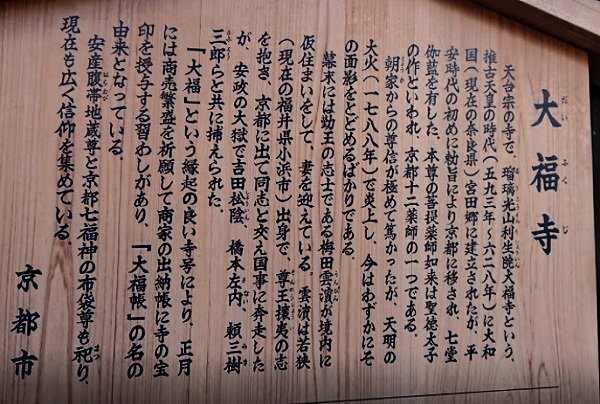 大福寺
だいふくじ
天台宗の寺で、瑠璃光山利生院大福寺という。
推古天皇の時代(五九三年~六二八年)に大和
国(現在の奈良県)宮田郷に建立されたが、平
安時代の初めに勅旨により京都に移され、七堂
伽藍を有した。本尊の菩提薬師如来は聖徳太子
の作といわれ、京都十二薬師の一つである。
朝家からの尊信が極めて篤かったが、天明の
大火(一七八八年)で炎上し、今はわずかにそ
の面影をとどめるばかりである。
幕末には勤王の志士である梅田雲濱が境内に
仮住まいをして、妻を迎えている。雲濱は若狭
(現在の福井県小浜市)出身で、尊王攘夷の志
を抱き、京都に出て同志と交え国事に奔走した
が、安政の大獄で吉田松陰、橋本左内、頼三樹
三郎らと共に捕えられた。
「大福」という縁起の良い寺号により、正月
には商売繁盛を祈願して商家の出納帳に寺の宝
印を授与する習わしがあり、「大福帳」の名の
由来となっている。
安産腹帯地蔵尊と京都七福神の布袋尊も祀り、
現在も広く信仰を集めている。
京都市